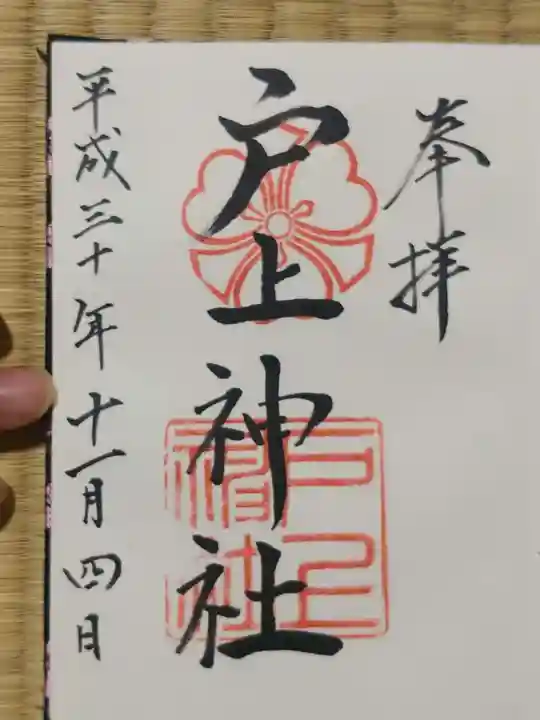 奉拝
戸上神社
平成三十年十一月四日
戸上
神社